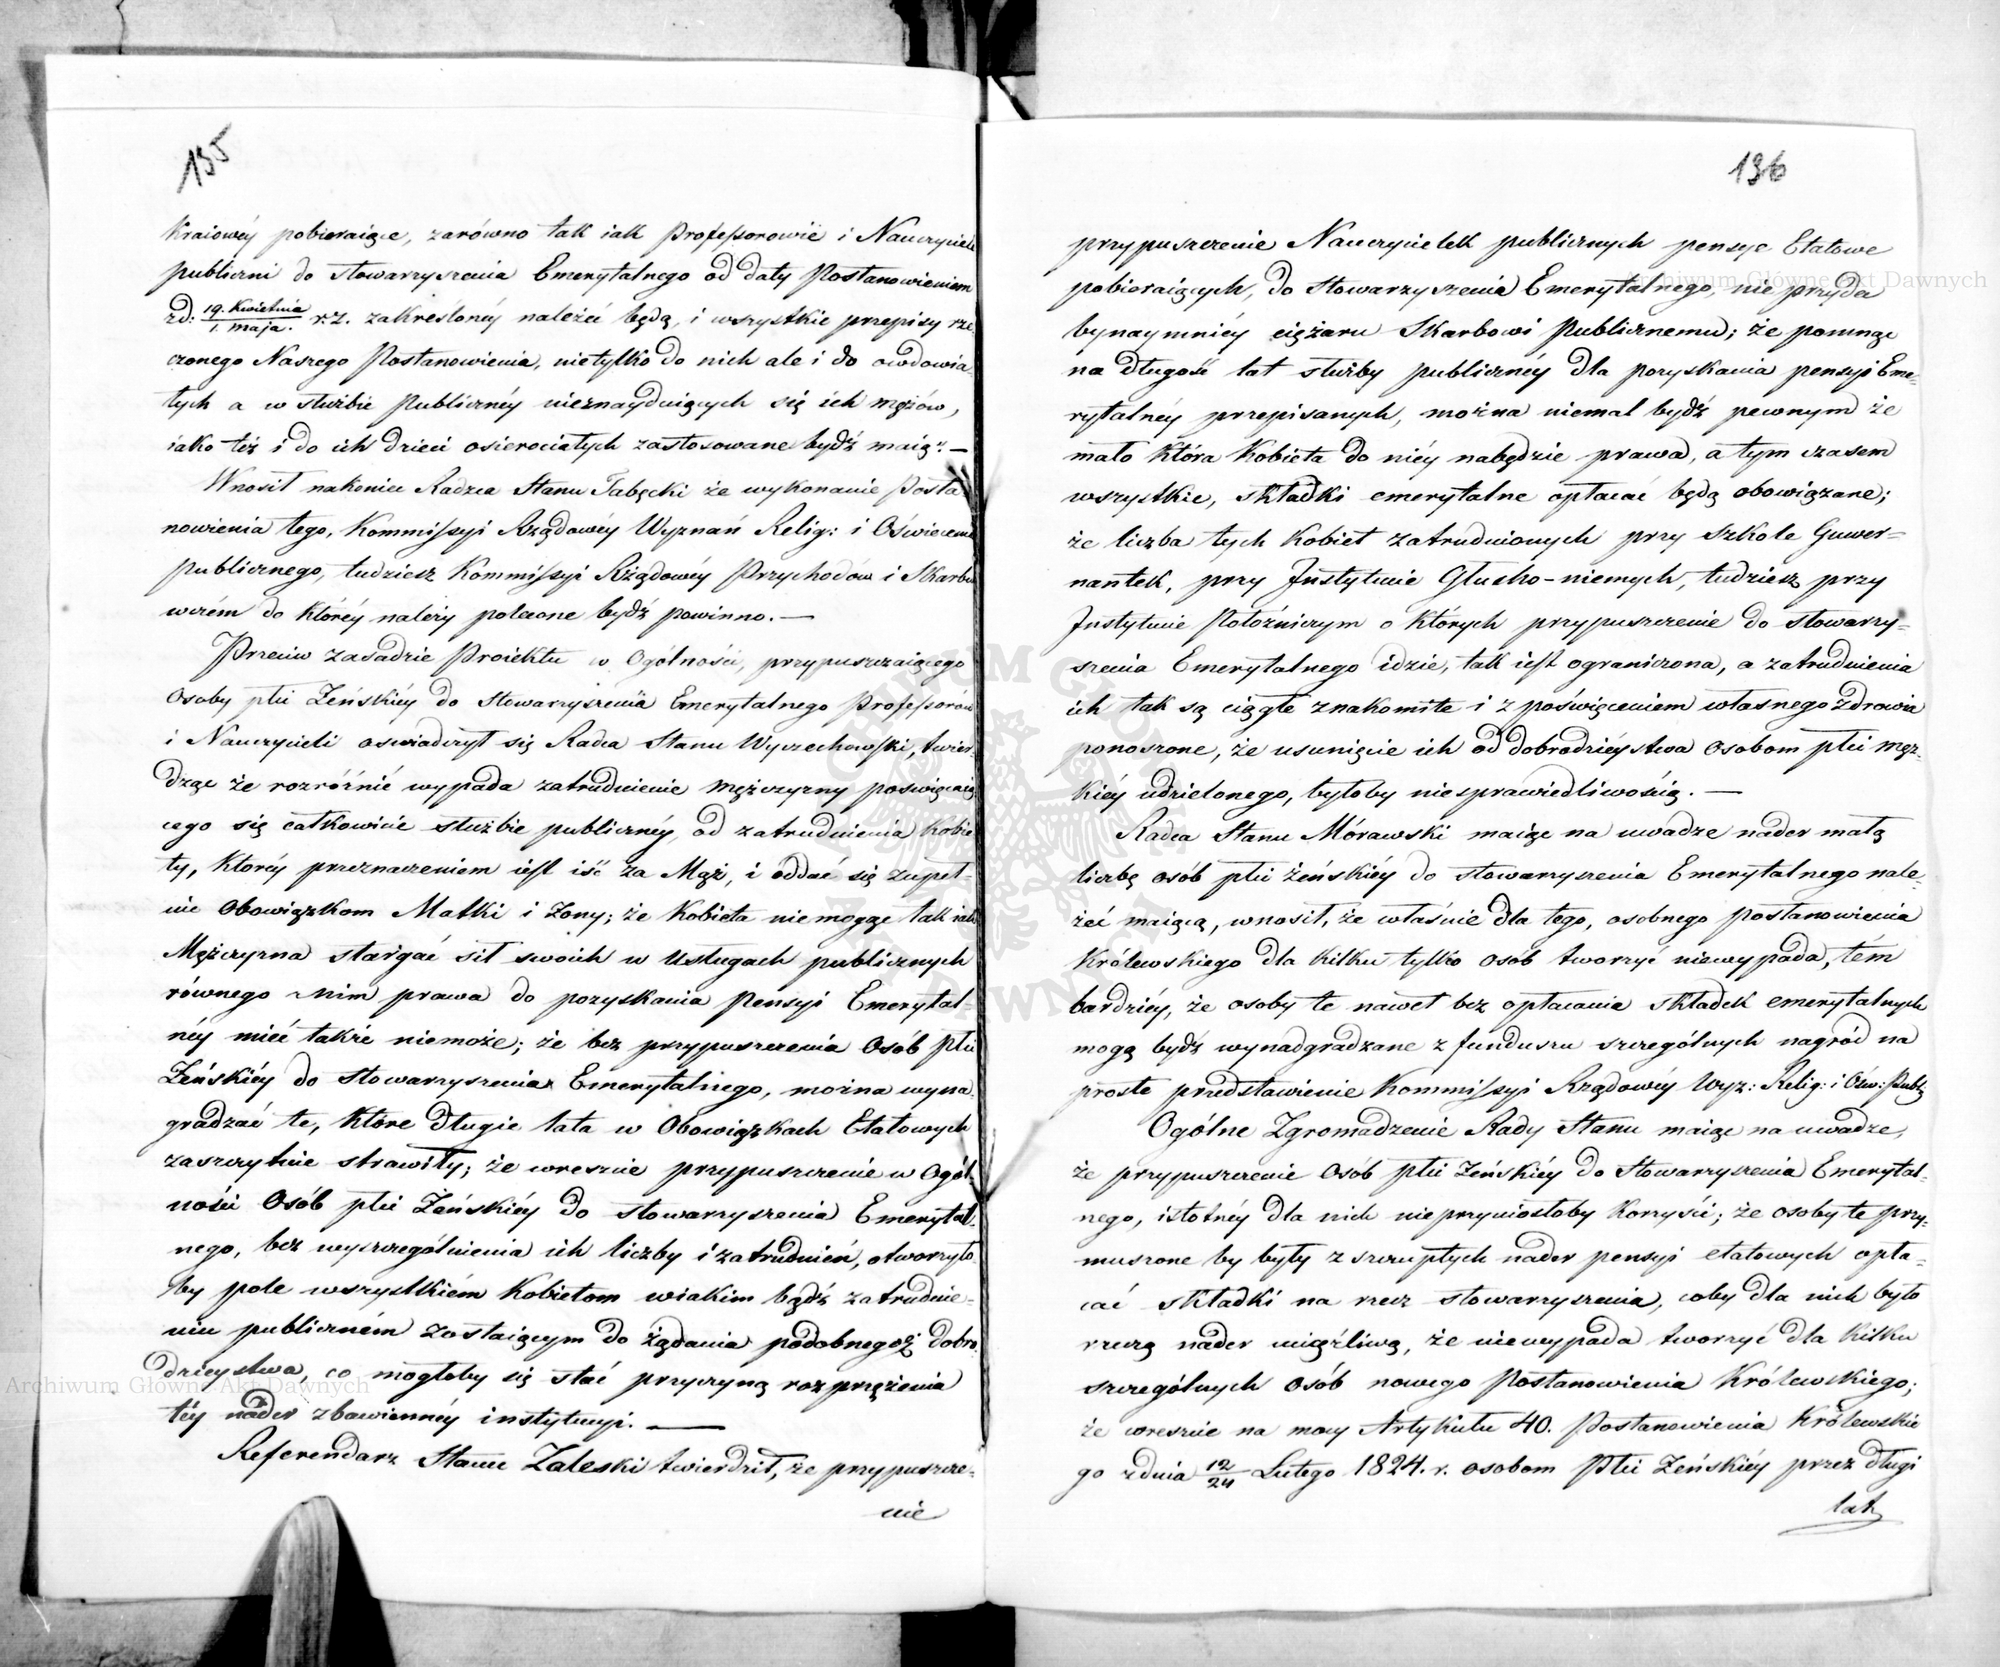 135
Kraiowéy pobieraiące, zarówno tak iak Professorowie i Nauczyciele
publiczni do Stowarzyszenia Emerytalnego od daty Postanowieniem
zd: 19. Kwietnia / 1. Maja. r.z. zakreślonéy należeć będą, i wszystkie przepisy rze-
czonego Naszego Postanowienia, nietylko do nich ale i do owdowia-
łych a w służbie Publicznéy nieznayduiących się ich mężów,
iako też i do ich dzieci osierociałych zastosowane bydź maią". —
Wnosił nakoniec Radca Stanu Tabęcki że wykonanie Posta-
nowienia tego, Kommissyi Rządowéy Wyznań Relig: i Oświecenia
publicznego, tudziesz Kommissyi Rządowéy Przychodów i Skarbu
wczém do któréy należy polecone bydź powinno. —
Przeciw zasadzie Proiektu w Ogólności, przypuszczaiącego
Osoby płci Żeńskiéy do Stowarzyszenia Emerytalnego Professorów
i Nauczycieli oświadczył się Radca Stanu Wyczechowski, twier-
dząc że rozróżnić wypada zatrudnienie Mężczyzny poświęcaią-
cego się całkowicie służbie publicznéy, od zatrudnienia Kobie-
ty, któréy przeznaczeniem iest iść za Mąż, i oddać się zupeł-
nie Obowiązkom Matki i Żony; że Kobieta niemogąc tak iak
Mężczyzna stargać sił swoich w Usługach publicznych
równego z nim prawa do pozyskania Pensyi Emerytal-
néy mieć także niemoże; że bez przypuszczenia Osób płci
Żeńskiéy do Stowarzyszenia Emerytalnego, można wyna-
gradzać te, które długie lata w Obowiązkach Etatowych
zaszczytnie strawiły; że wreszcie przypuszczenie w Ogól-
ności Osób płci Żeńskiéy do stowarzyszenia Emerytal-
nego, bez wyszczególnienia ich liczby i zatrudnień, otworzyło-
by pole wszystkiém Kobietom wiakim bądź zatrudnie-
niu publiczném zostaiącym do żądania podobnegoż dobro-
dzieystwa, co mogłoby się stać przyczyną rozprzężenia
téy nader zbawiennéy instytucyi. —
Referendarz Stanu Zaleski twierdził, że przypuszcze-
nie
136
przypuszczenie Nauczycielek publicznych pensye Etatowe
pobieraiących, do Stowarzyszenia Emerytalnego, nie przyda
bynaymniéy ciężaru Skarbowi Publicznemu; że pomnąc
na długość lat służby publicznéy dla pozyskania pensyi Eme-
rytalnéy przepisanych, można niemal bydź pewnym że
mało która Kobieta do niéy nabędzie prawa, a tym czasem
wszystkie, składki emerytalne opłacać będą obowiązane;
że liczba tych Kobiet zatrudnionych przy Szkole Guwer-
nantek, przy Instytucie Głucho-niemych, tudziesz przy
Instytucie Położniczym o których przypuszczenie do stowarzy-
szenia Emerytalnego idzie, tak iest ograniczona, a zatrudnienia
ich tak są ciągłe znakomite i z poświęceniem własnego zdrowia
ponoszone, że usunięcie ich od dobrodzieystwa osobom płci męz-
kiéy udzielonego, byłoby niesprawiedliwością. —
Radca Stanu Morawski maiąc na uwadze nader małą
liczbę osób płci żeńskiéy do stowarzyszenia Emerytalnego nale-
żeć maiącą, wnosił, że właśnie dla tego, osobnego postanowienia
Królewskiego dla kilku tylko osób tworzyć niewypada, tém
bardziéy, że osoby te nawet bez opłacania składek emerytalnych
mogą bydź wynadgradzane z funduszu szczególnych nagród na
proste przedstawienie Kommissyi Rządowéy Wyz: Relig: i Ośw: Publ:
Ogólne Zgromadzenie Rady Stanu maiąc na uwadze,
że przypuszczenie Osób płci Żeńskiéy do Stowarzyszenia Emerytal-
nego, istotnéy dla nich nieprzyniosłoby korzyści; że osoby te przy-
muszone by były z szczupłych nader pensyi etatowych opła-
cać składki na rzecz stowarzyszenia, coby dla nich było
rzeczą nader uciążliwą, że niewypada tworzyć dla kilku
szczególnych osób nowego Postanowienia Królewskiego;
że wreszcie na mocy Artykułu 40. Postanowienia Królewskie
go zdnia 12/24 Lutego 1824. r. osobom Płci Żeńskiéy przez długi
lat
Archiwum Główne Akt Dawnych
Archiwum Główne Akt Dawnych